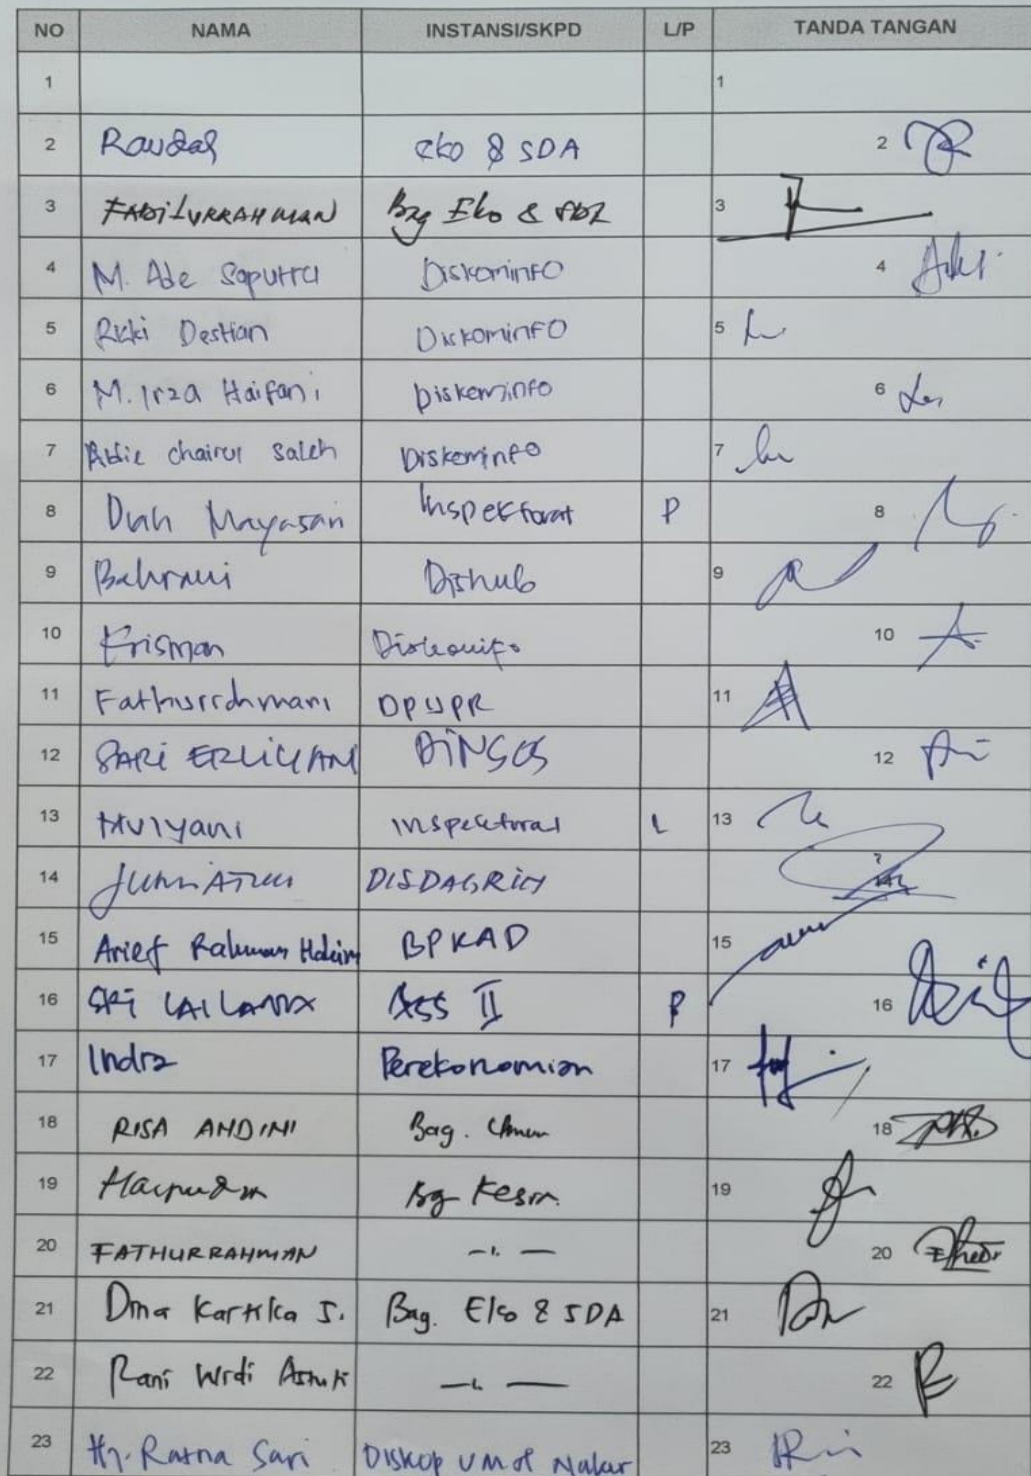 NO NAMA INSTANSI/SKPD L/P TANDA TANGAN
1 1
2 Raudah eko & SDA 2
3 FADILURRAHMAN Bag Eko & SDA 3
4 M. Ade Saputra Diskominfo 4
5 Rizki Destian Diskominfo 5
6 M. Irza Haifani Diskominfo 6
7 Abdie chairul saleh Diskominfo 7
8 Diah Mayasari Inspektorat P 8
9 Bahrani Dishub 9
10 Krisman Diskominfo 10
11 Fathurrahmani DPUPR 11
12 SARI ERLIYANI DINSOS 12
13 Mulyani Inspektorat L 13
14 JUMIATUN DISDAGRIN
15 Arief Rahman Hakim BPKAD 15
16 SRI LAILANA ASS II P 16
17 Indra Perekonomian 17
18 RISA ANDINI Bag. Umum 18
19 Bag Kesra 19
20 FATHURRAHMAN -"- 20
21 Dina Kartika S. Bag. Eko & SDA 21
22 Rani Widi Astuti -"- 22
23 Hj. Ratna Sari Diskop UM dan Naker 23